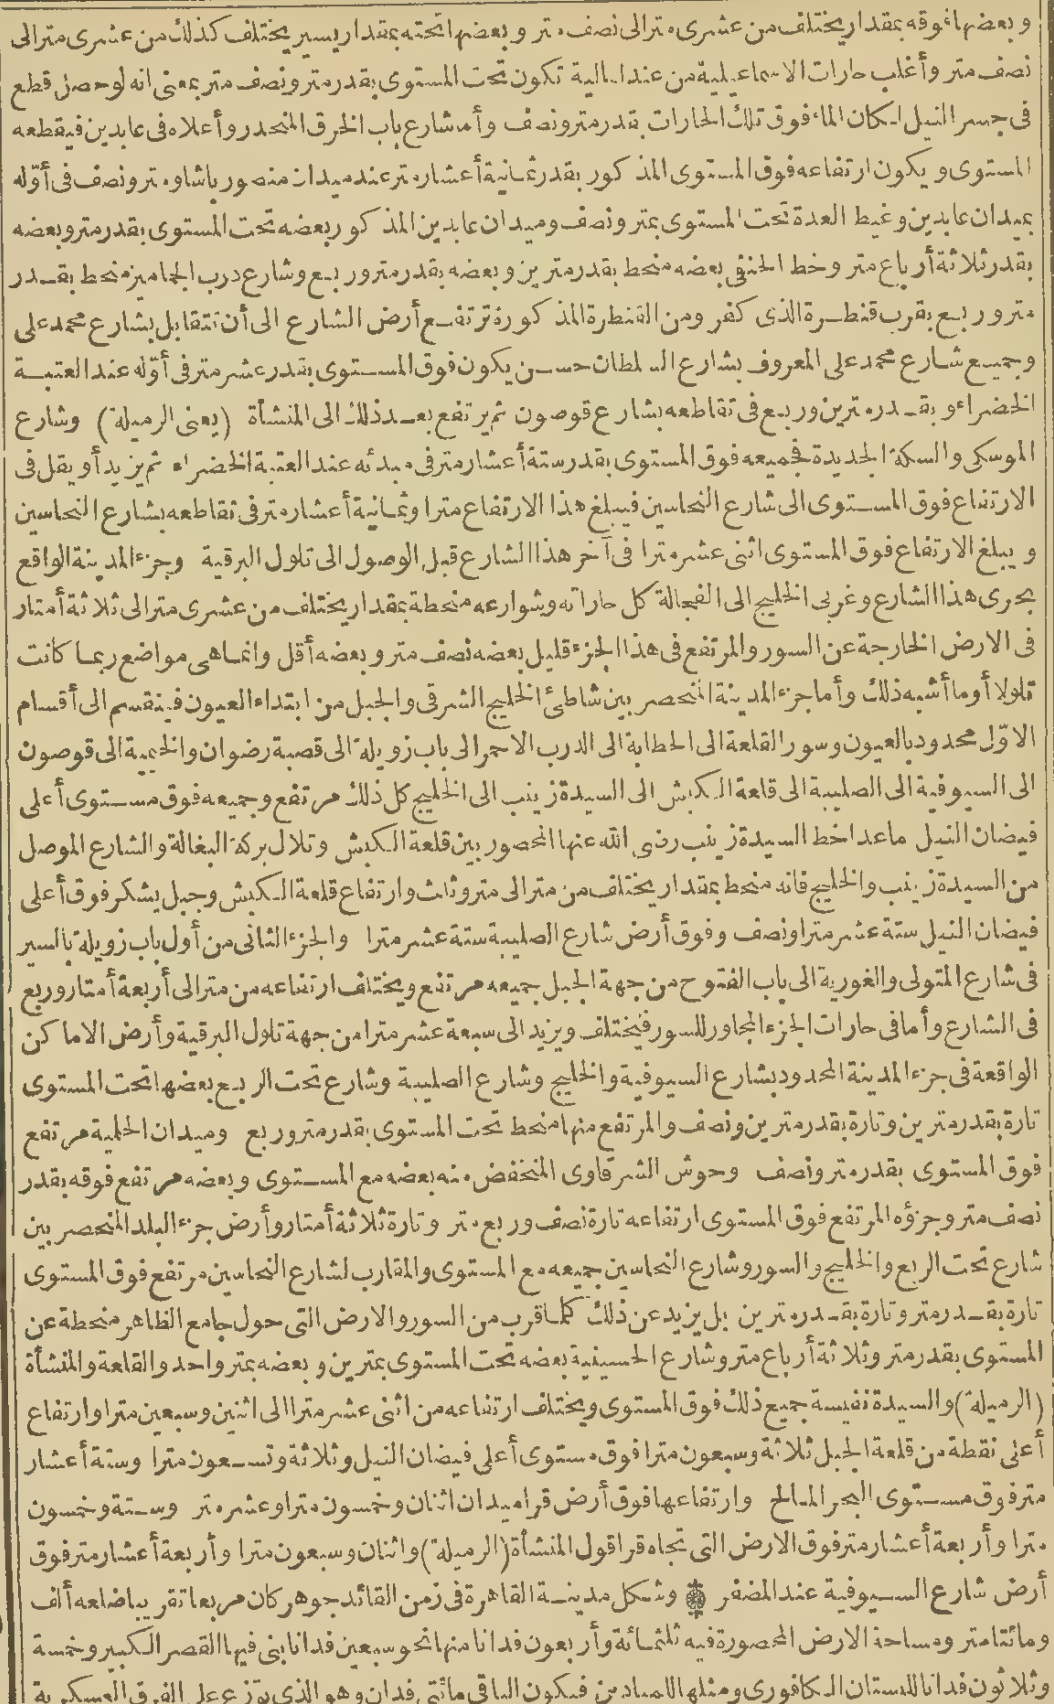 وبعضها فوقه بمقدار يختلف من عشرى متر الى نصف متر وبعضها تحته بمقدار يسير يختلف كذلك من عشرى متر الى
نصف متر وأغلب حارات الاسماعيلية من عند المالية تكون تحت المستوى بقدر متر ونصف متر بمعنى انه لو حصل قطع
فى جسر النيل لكان الماء فوق تلك الحارات بقدر متر ونصف وأما شارع باب الخرق المنحدر وأعلاه فى عابدين فيقطعه
المستوى ويكون ارتفاعه فوق المستوى المذكور بقدر ثمانية أعشار متر عند ميدان منصور باشا ومتر ونصف فى أوّله
بميدان عابدين وغيط العدة تحت المستوى بمتر ونصف وميدان عابدين المذكور بعضه تحت المستوى بقدر متر وبعضه
بقدر ثلاثة أرباع متر وخط الحنفى بعضه منحط بقدر مترين وبعضه بقدر متر وربع وشارع درب الجماميز منحط بقدر
متر وربع بقرب قنطرة الذى كفر ومن القنطرة المذكورة ترتفع أرض الشارع الى أن تتقابل بشارع محمد على
وجميع شارع محمد على المعروف بشارع السلطان حسن يكون فوق المستوى بقدر عشر متر فى أوّله عند العتبة
الخضراء وبقدر مترين وربع فى تقاطعه بشارع قوصون ثم يرتفع بعد ذلك الى المنشأة (يعنى الرميلة) وشارع
الموسكى والسكة الجديدة فجميعه فوق المستوى بقدر ستة أعشار متر فى مبدئه عند العتبة الخضراء ثم يزيد أو يقل فى
الارتفاع فوق المستوى الى شارع النحاسين فيبلغ هذا الارتفاع مترا وثمانية أعشار متر فى تقاطعه بشارع النحاسين
ويبلغ الارتفاع فوق المستوى اثنى عشر مترا فى آخر هذا الشارع قبل الوصول الى تلول البرقية وجزء المدينة الواقع
بحرى هذا الشارع وغربى الخليج الى الفجالة كل حاراته وشوارعه منحطة بمقدار يختلف من عشرى متر الى ثلاثة أمتار
فى الارض الخارجة عن السور والمرتفع فى هذا الجزء قليل بعضه نصف متر وبعضه أقل وانما هى مواضع ربما كانت
تلولا أو ما أشبه ذلك وأما جزء المدينة المنحصر بين شاطئ الخليج الشرقى والجبل من ابتداء العيون فينقسم الى أقسام
الاوّل محدود بالعيون وسور القلعة الى الحطابة الى الدرب الاحمر الى باب زويلة الى قصبة رضوان والخيمية الى قوصون
الى السيوفية الى الصليبة الى قلعة الكبش الى السيدة زينب الى الخليج كل ذلك مرتفع وجميعه فوق مستوى أعلى
فيضان النيل ماعدا خط السيدة زينب رضى الله عنها المحصور بين قلعة الكبش وتلال بركة البغالة والشارع الموصل
من السيدة زينب والخليج فانه منحط بمقدار يختلف من متر الى متر وثلث وارتفاع قلعة الكبش وجبل يشكر فوق أعلى
فيضان النيل ستة عشر مترا ونصف وفوق أرض شارع الصليبة ستة عشر مترا والجزء الثانى من أول باب زويلة بالسير
فى شارع المتولى والغورية الى باب الفتوح من جهة الجبل جميعه مرتفع ويختلف ارتفاعه من متر الى أربعة أمتار وربع
فى الشارع وأما فى حارات الجزء المجاور للسور فيختلف ويزيد الى سبعة عشر مترا من جهة تلول البرقية وأرض الاماكن
الواقعة فى جزء المدينة المحدود بشارع السيوفية والخليج وشارع الصليبة وشارع تحت الربع بعضها تحت المستوى
تارة بقدر مترين وتارة بقدر مترين ونصف والمرتفع منها منحط تحت المستوى بقدر متر وربع وميدان الحلمية مرتفع
فوق المستوى بقدر متر ونصف وحوش الشرقاوى المنخفض منه بعضه مع المستوى وبعضه مرتفع فوقه بقدر
نصف متر وجزؤه المرتفع فوق المستوى ارتفاعه تارة نصف وربع متر وتارة ثلاثة أمتار وأرض جزء البلد المنحصر بين
شارع تحت الربع والخليج والسور وشارع النحاسين جميعه مع المستوى والمقارب لشارع النحاسين مرتفع فوق المستوى
تارة بقدر متر وتارة بقدر مترين بل يزيد عن ذلك كلما قرب من السور والارض التى حول جامع الظاهر منحطة عن
المستوى بقدر متر وثلاثة أرباع متر وشارع الحسينية بعضه تحت المستوى بمترين وبعضه بمتر واحد والقلعة والمنشأة
(الرميلة) والسيدة نفيسة جميع ذلك فوق المستوى ويختلف ارتفاعه من اثنى عشر مترا الى اثنين وسبعين مترا وارتفاع
أعلى نقطة من قلعة الجبل ثلاثة وسبعون مترا فوق مستوى أعلى فيضان النيل وثلاثة وتسعون مترا وستة أعشار
متر فوق مستوى البحر المالح وارتفاعها فوق أرض قراميدان اثنان وخمسون مترا وعشر متر وستة وخمسون
مترا وأربعة أعشار متر فوق الارض التى تجاه قراقول المنشأة (الرميلة) واثنان وسبعون مترا وأربعة أعشار متر فوق
أرض شارع السيوفية عند المضفر ۞ وشكل مدينة القاهرة فى زمن القائد جوهر كان مربعا تقريبا ضلعه ألف
ومائتا متر ومساحة الارض المحصورة فيه ثلثمائة وأربعون فدانا منها نحو سبعين فدانا بنى فيها القصر الكبير وخمسة
وثلاثون فدانا للبستان الكافورى ومثلها للميادين فيكون الباقى مائتى فدان وهو الذى توزع على الفرق العسكرية